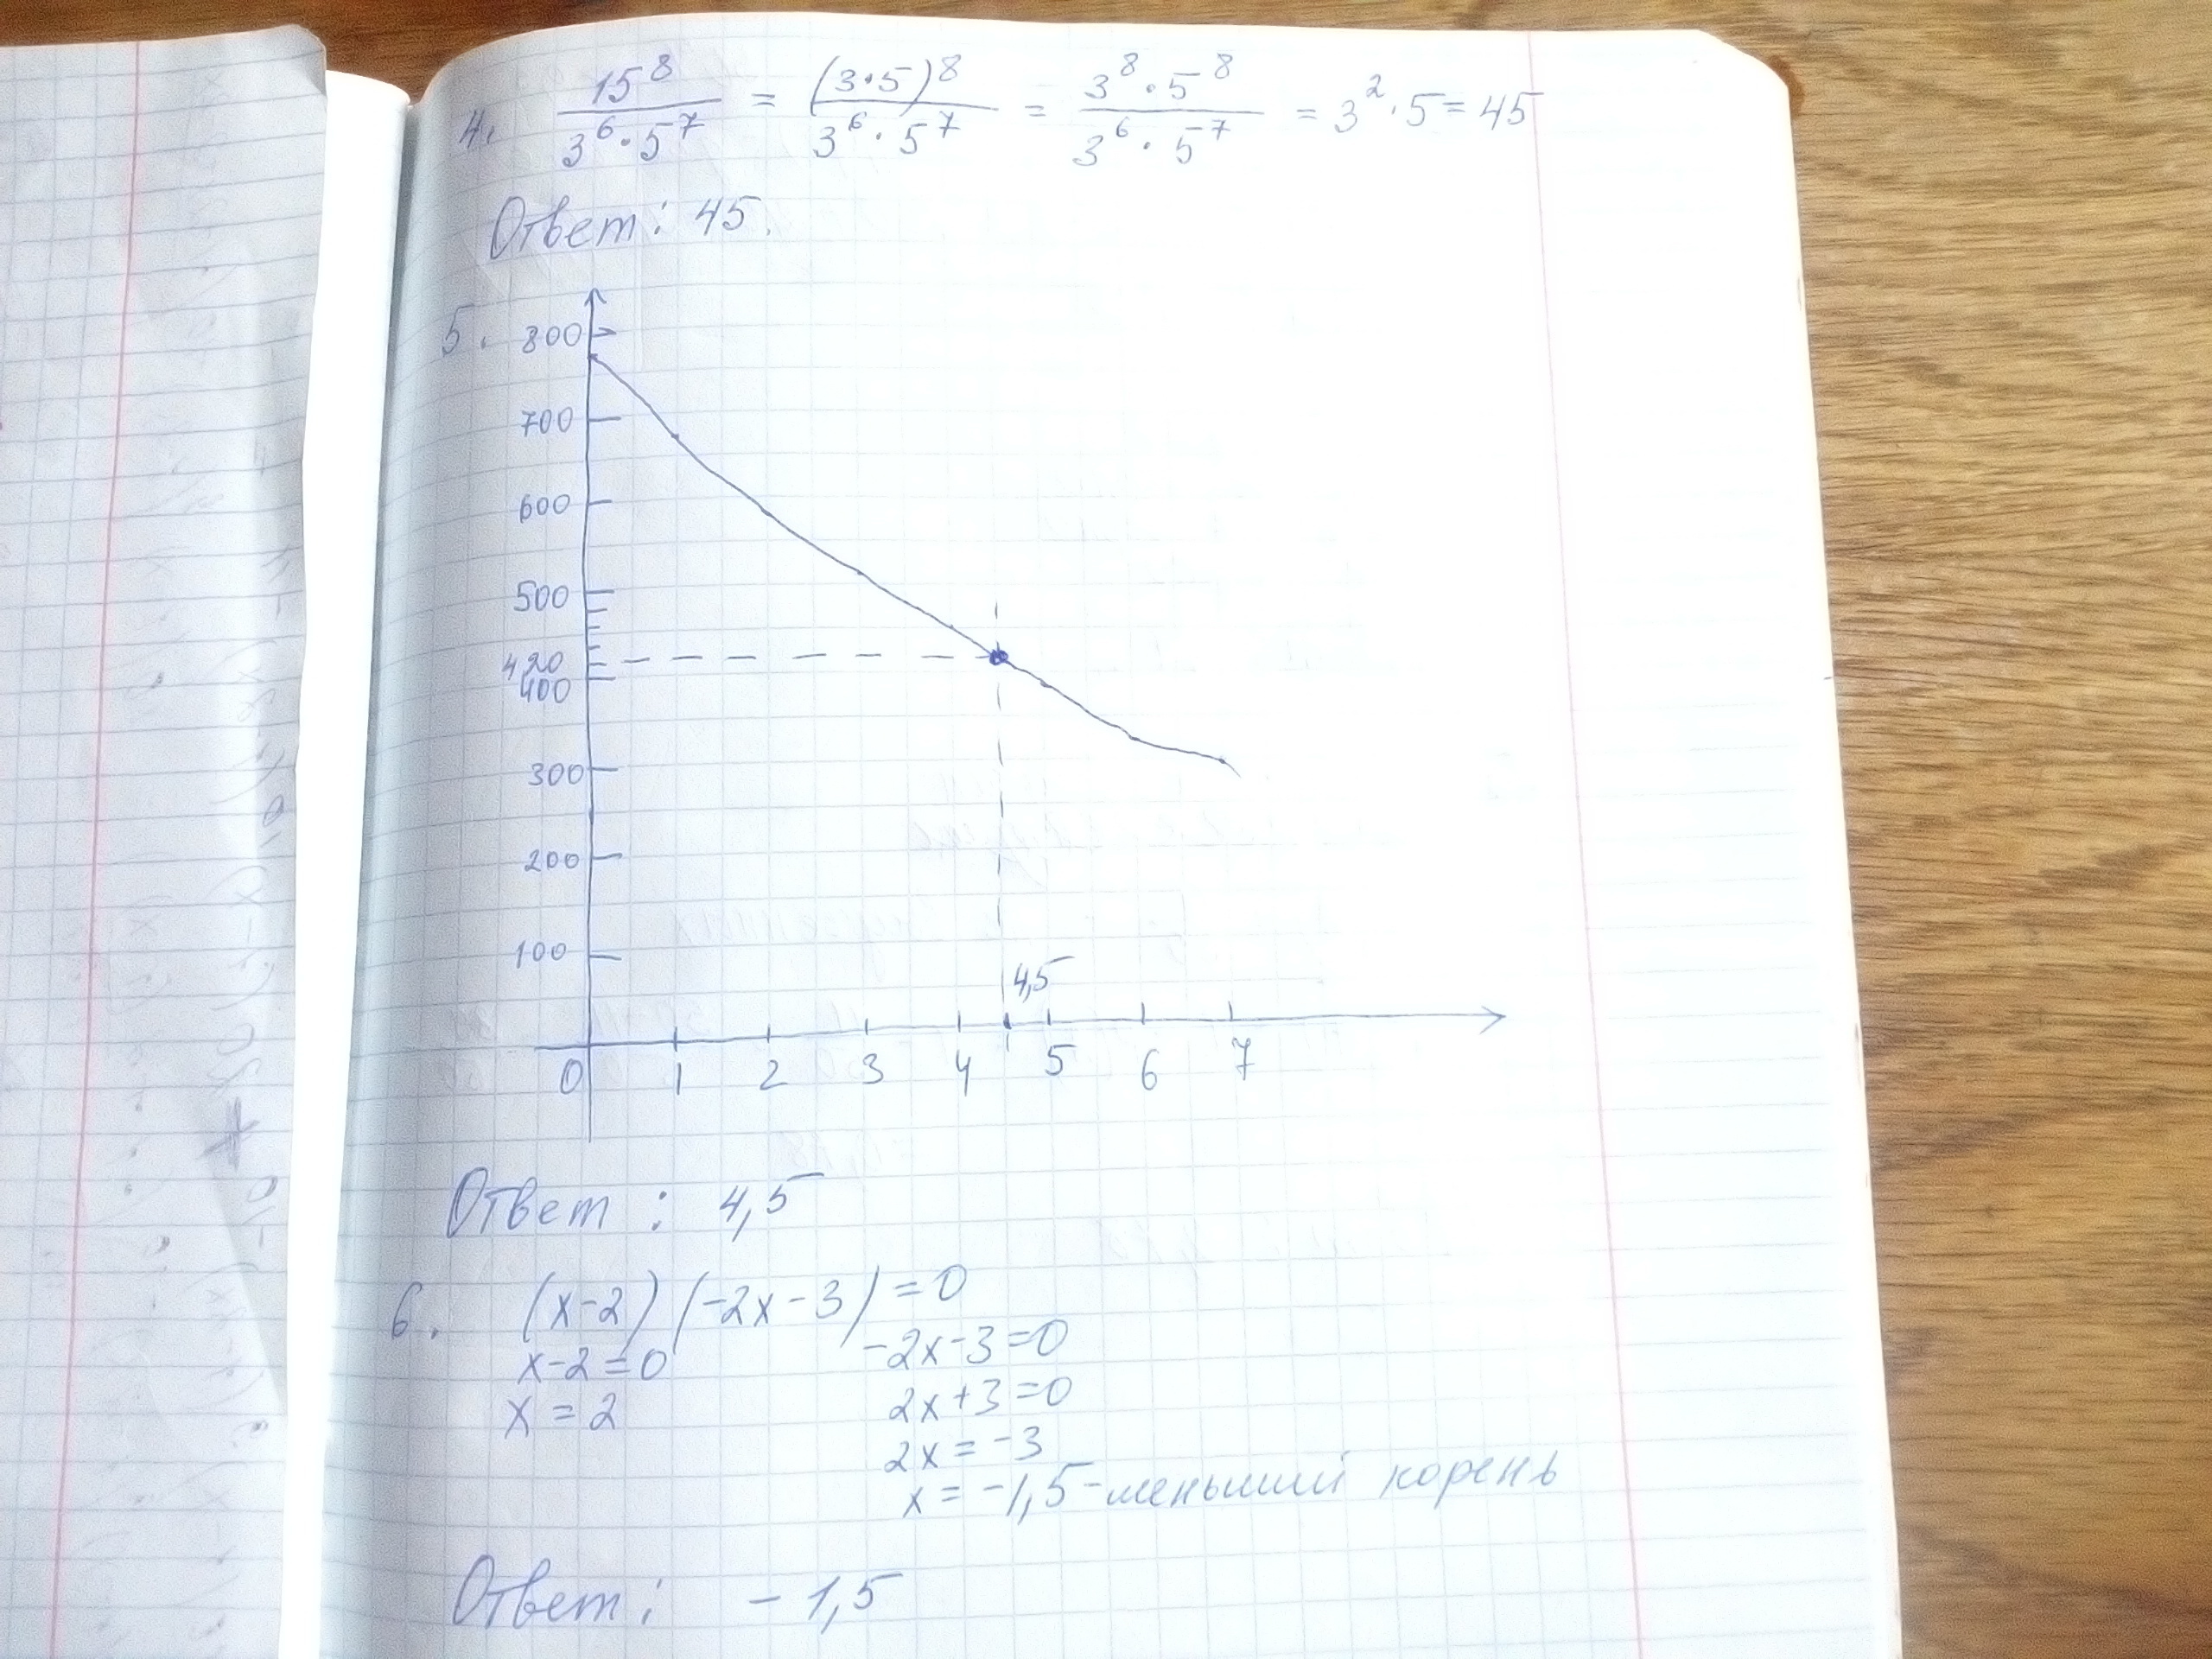 4. 15⁸/(3⁶·5⁷) = (3·5)⁸/(3⁶·5⁷) = (3⁸·5⁸)/(3⁶·5⁷) = 3²·5 = 45
Ответ: 45.
5.
800
700
600
500
420
400
300
200
100
4,5
0 1 2 3 4 5 6 7
Ответ: 4,5
6. (x-2)(-2x-3)=0
x-2=0 -2x-3=0
x=2 2x+3=0
2x=-3
x=-1,5-меньший корень
Ответ: -1,5